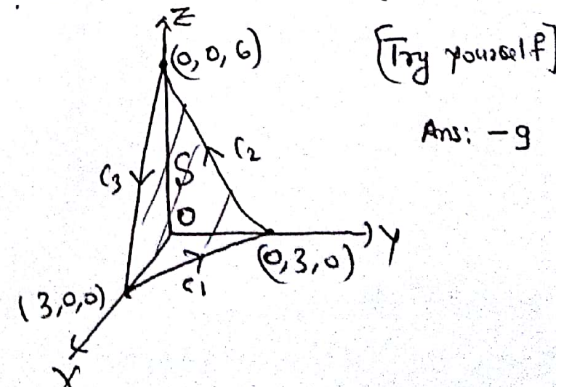 Z
(0,0,6)
[Try yourself]
Ans: -9
C3
C2
S
O
Y
(0,3,0)
C1
(3,0,0)
X